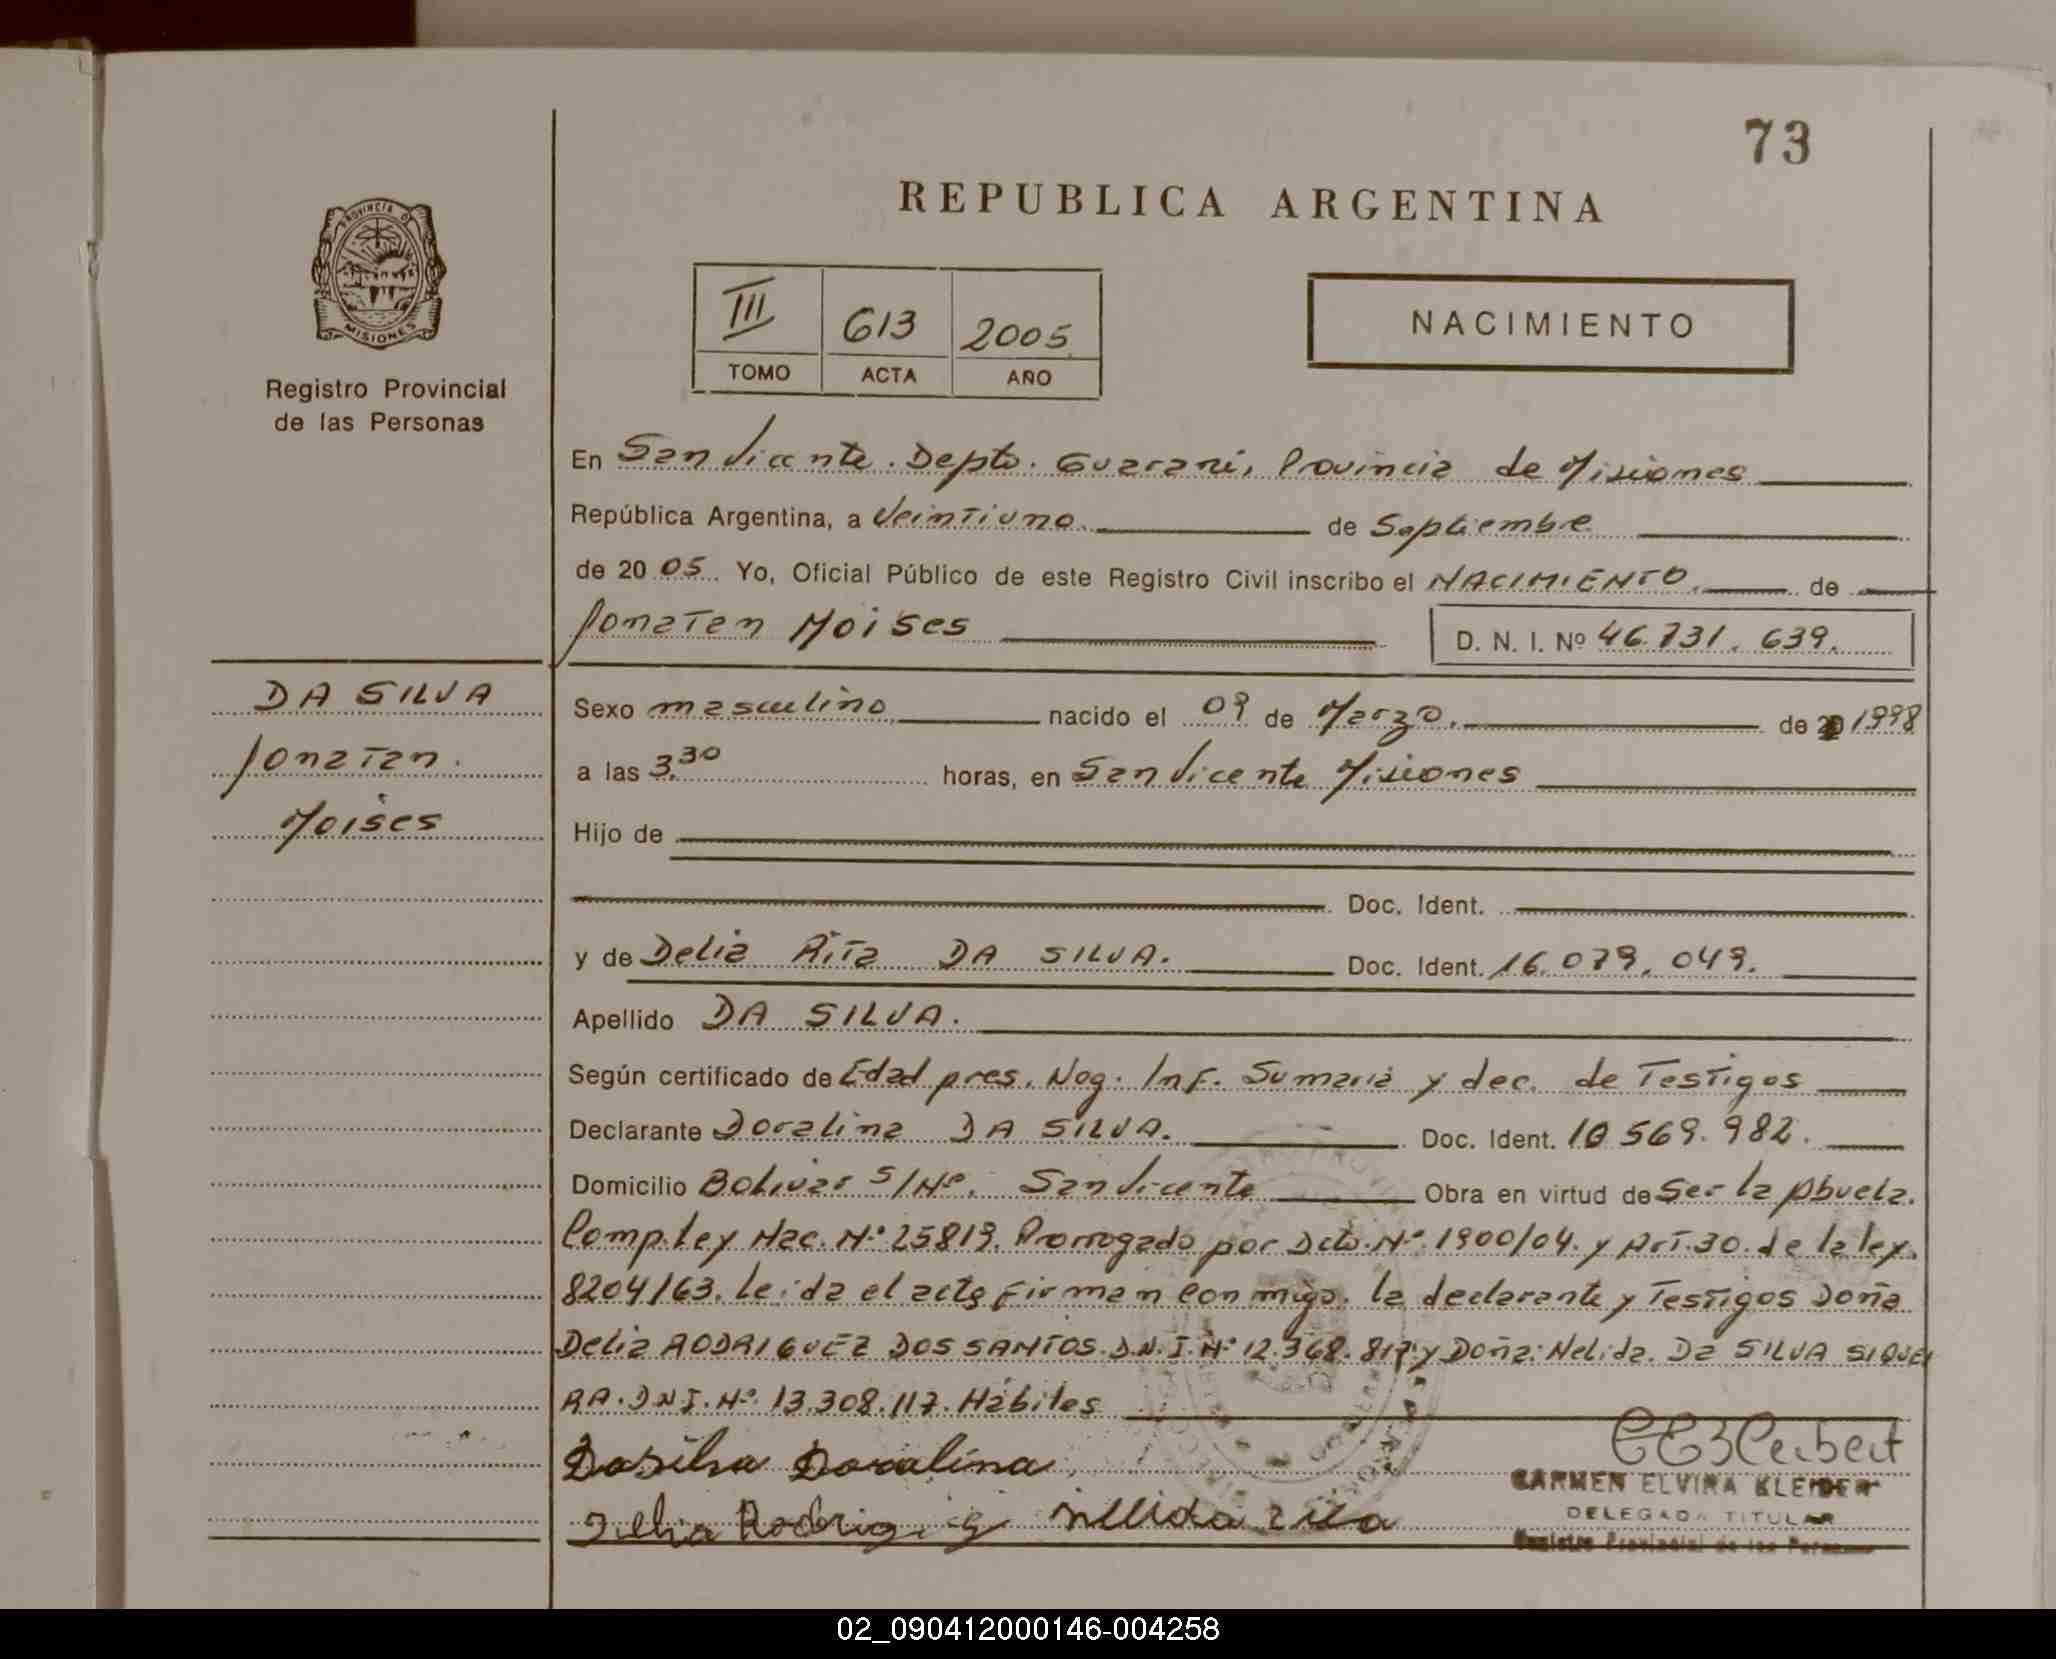 73
REPUBLICA ARGENTINA
PROVINCIA DE
MISIONES
Registro Provincial
de las Personas
III 613 2005
TOMO ACTA AÑO
NACIMIENTO
En San Vicente. Depto. Guaraní, Provincia de Misiones
República Argentina, a Veintiuno de Septiembre
de 2005. Yo, Oficial Público de este Registro Civil inscribo el NACIMIENTO. de
Jonatan Moises D. N. I. Nº 46.731.639.
DA SILVA
Jonatan.
Moises
Sexo masculino nacido el 09 de Marzo. de 20 1998
a las 3.30 horas, en San Vicente Misiones
Hijo de
Doc. Ident.
y de Delia Rita DA SILVA. Doc. Ident. 16.079.049.
Apellido DA SILVA.
Según certificado de Edad pres. Nog. Inf. Sumaria y dec. de Testigos
Declarante Doralina DA SILVA. Doc. Ident. 10 569.982.
Domicilio Bolivar S/Nº. San Vicente Obra en virtud de Ser la Abuela.
Comp. Ley Nac. Nº 25819. Prorrogado por Dcto. Nº 1900/04. y Art. 30. de la ley.
8204/63. Leida el acta firman conmigo. la declarante y Testigos Doña
Delia RODRIGUEZ DOS SANTOS. D.N.I. Nº 12.368.817. y Doña: Nelida. Da SILVA SIQUEI
RA. DNI. Nº. 13.308.117. Hábiles
Dasilva Doralina
Delia Rodrig
CARMEN ELVIRA KLEIBER
DELEGADA TITULAR
Registro Provincial de las Personas
02_090412000146-004258